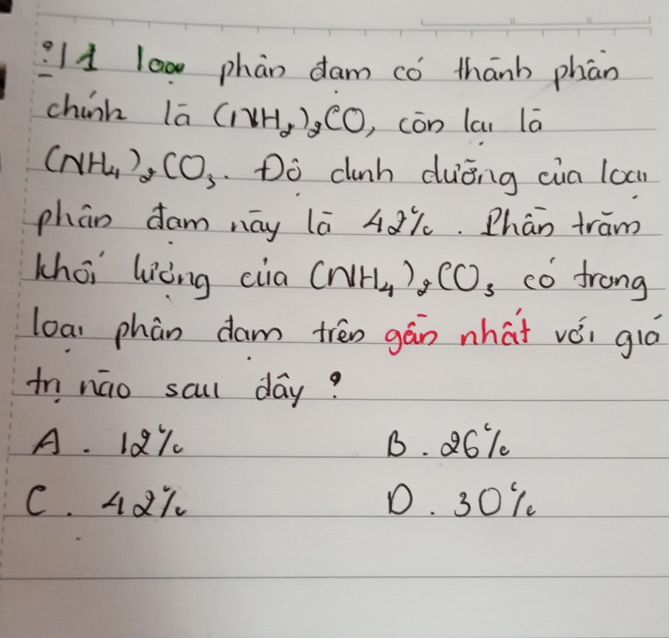 1 loại phân đạm có thành phần
chính là (NH₂)₂CO, còn lại là
(NH₄)₂CO₃. Độ dinh dưỡng của loại
phân đạm này là 42%. Phần trăm
khối lượng của (NH₄)₂CO₃ có trong
loại phân đạm trên gần nhất với giá
trị nào sau đây?
A. 12% B. 26%
C. 42% D. 30%